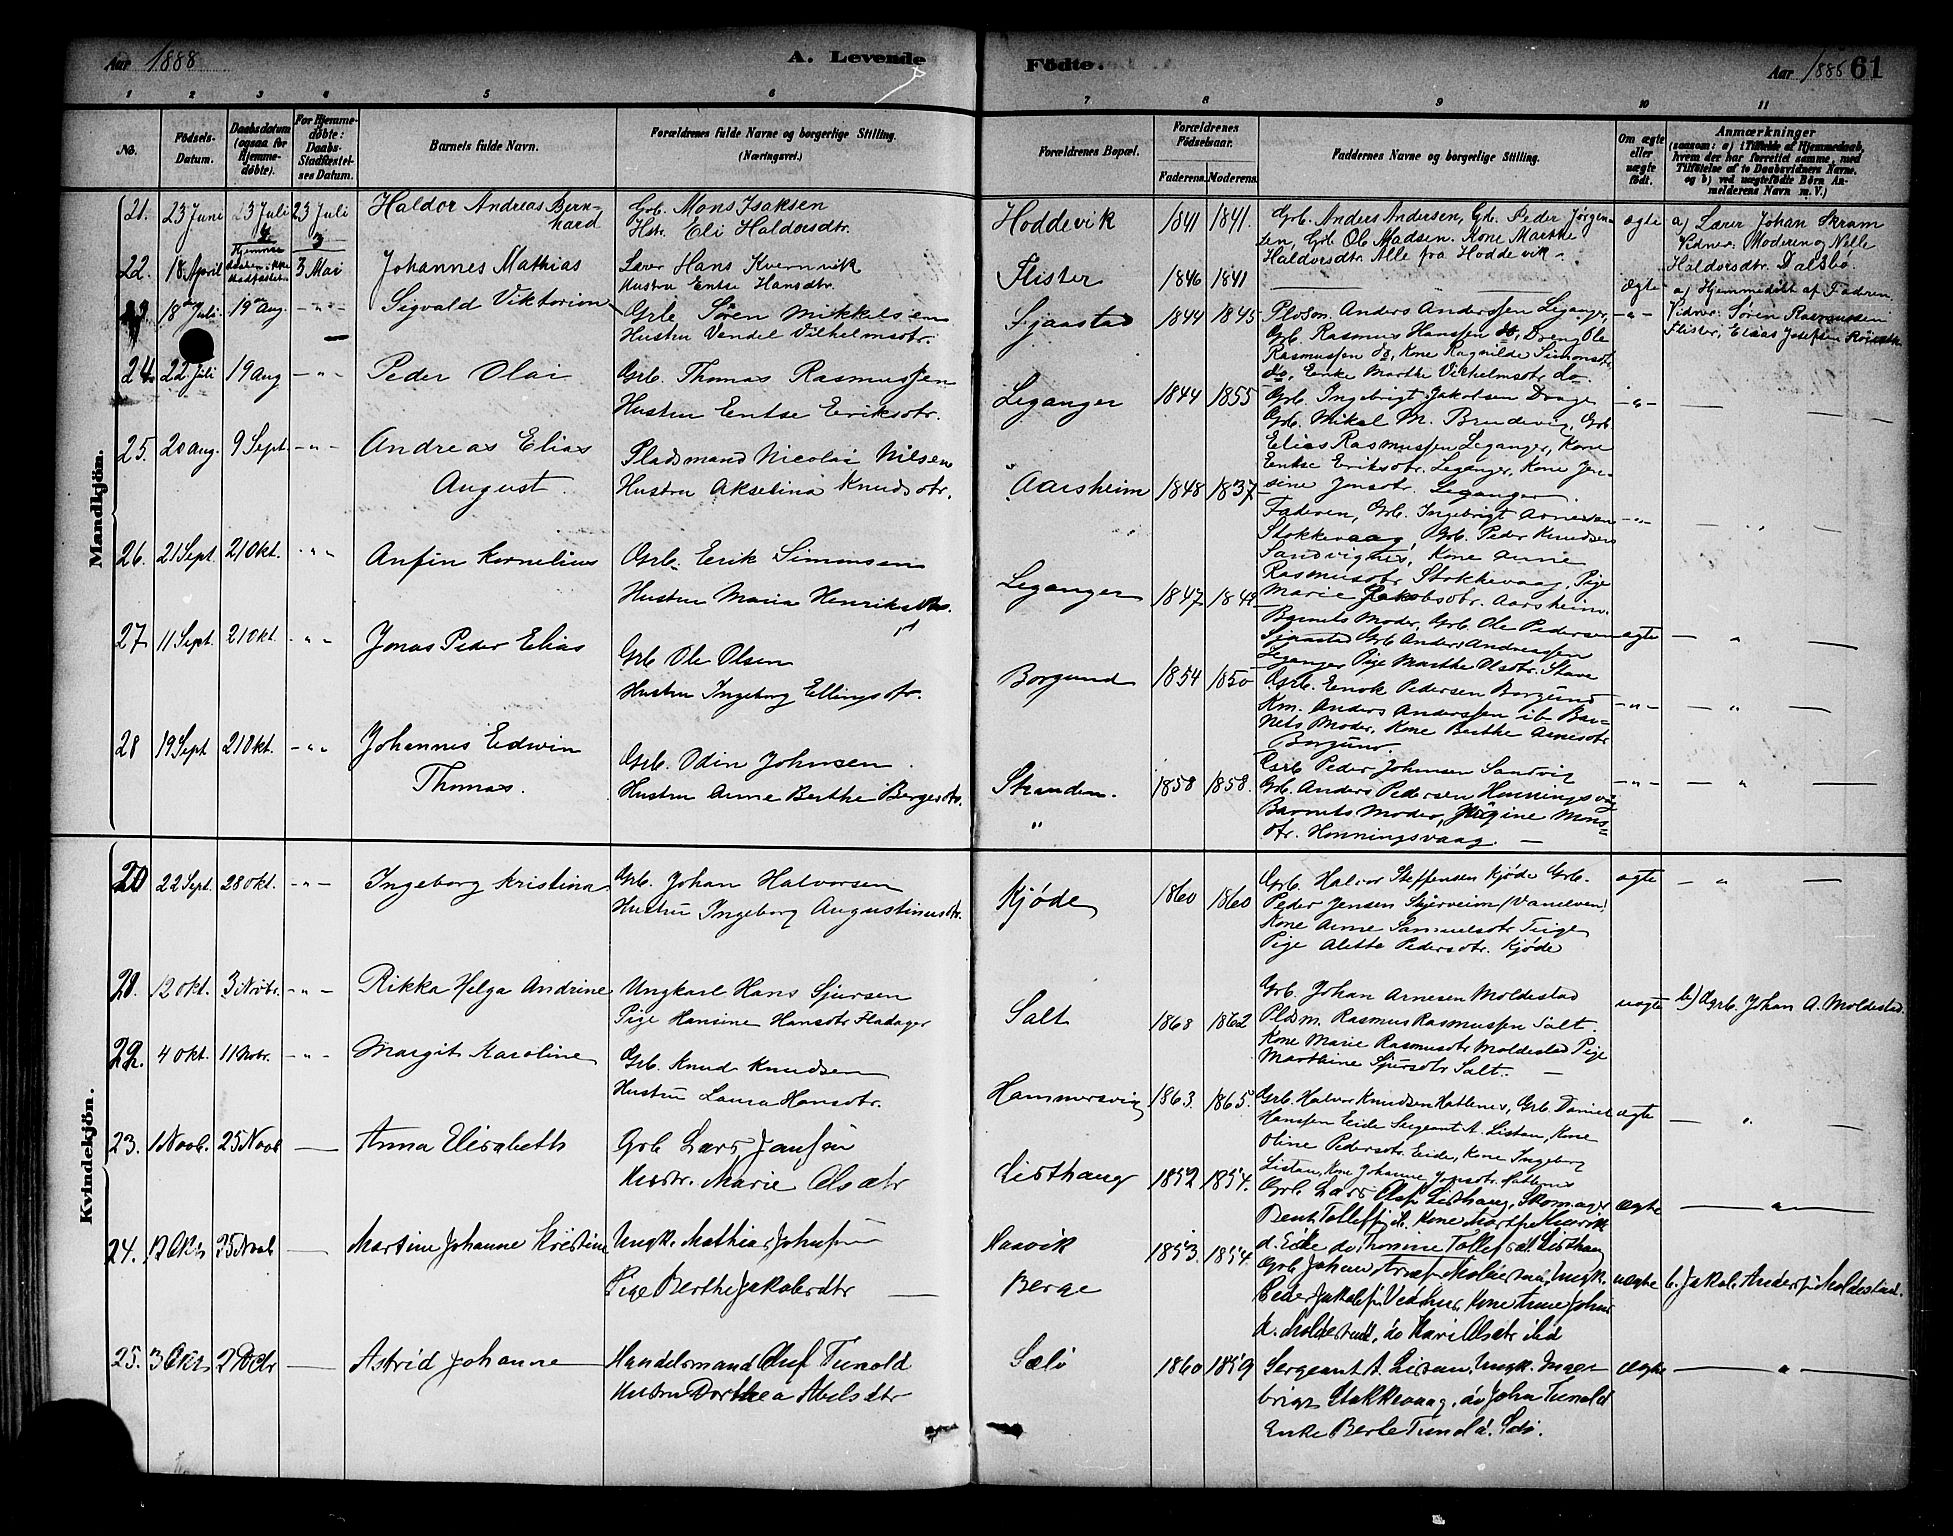 Aar 1888
A. Levende
Födte.
Aar 1888
61
1 2 3 4 5 6 7 8 9 10 11
No.
Födsels-Datum.
Daabsdatum (ogsaa for Hjemmedöbte).
For Hjemmedöbte: Daabs-Stadfæstelses Datum.
Barnets fulde Navn.
Forældrenes fulde Navne og borgerlige Stilling. (Næringsvei.)
Forældrenes Bopæl.
Forældrenes Födselsaar.
Faderens. Moderens.
Faddernes Navne og borgerlige Stilling.
Om ægte eller uægte födt.
Anmærkninger
(saasom: a) i Tilfælde af Hjemmedaab, hvem der har forrettet samme, med Tilföielse af to Daabsvidners Navne, og b) ved uægtefödte Börn Anmelderens Navn m. V.)
Mandkjön.
21. 23 Juni 23 Juli 23 Juli Haldor Andreas Bernhard
Grb. Mons Isaksen
Hstr. Eli Haldorsdtr.
Hoddevik 1841 1841.
Grb. Anders Andersen, Gb. Peder Jørgensen, Grb. Ole Madsen. Kone Marthe
Haldorsdtr. Alle fra Hoddevik
ægte
a) Lærer Johan Skram
Vidner: Moderen og Nille
Haldorsdtr. Dalsbø.
22. 18 April 3 Mai Johannes Mathias
Lærer Hans Kvernvik
Hustru Entse Hansdtr.
Flister 1846 1841
Ægte
a) Hjemmedøbt af Faderen.
Vidner: Søren Rasmussen
Flister, Elias Josefsen
23 18 Juli 19 Aug. - " - Sigvald Viktorion
Grb Sören Mikkelsen
Hustru Vendel Vilhelmsdtr.
Sjaastad 1844 1845
Pldsm. Anders Anderssen Leganger,
Grb. Rasmus Hanssen do, Dreng Ole
Rasmussen do, Kone Ragnilde Simonsdtr
do, Enke Marthe Vilhelmsdtr do.
- " -
24. 22 Juli 19 Aug - " - Peder Olai
Grb. Thomas Rasmussen
Hustru Entse Eriksdtr.
Leganger 1844 1855
Grb. Ingebrigt Jakobsen Drage
Grb. Mikal M. Brudevig, Grb.
Elias Rasmussen Leganger, Kone
Entse Eriksdtr. Leganger, Kone Jensine Jonsdtr. Leganger.
- " -
25. 20 Aug. 9 Sept. - " - Andreas Elias August
Pladsmand Nicolai Nilsen
Hustru Akselina Knudsdtr.
Aarsheim 1848 1837
Faderen, Grb. Ingebrigt Arnesen
Stokkevaag, Grb. Peder Knudsen
Sandvignes, Kone Anne
Rasmusdtr Stokkevaag, Pige
Marie Jakobsdtr. Aarsheim.
- " -
26. 21 Sept. 21 Okt. - " - Anfin Kornelius
Grb. Erik Simonsen
Hustru Maria Henriksdtr.
Leganger 1847 1849
Barnets Moder, Grb. Ole Pedersen
Sjaastad Grb Anders Andreassen
Leganger Pige Marthe Olsdtr. Stave
ægte — " —
27 11 Sept. 21 Okt. - " - Jonas Peder Elias
Grb. Ole Olsen
Hustru Ingeborg Ellingsdtr.
Borgund 1854 1850
Grb. Enok Pedersen Borgund
Km. Anders Anderssen ib. Barnets Moder, Kone Berthe Arnesdtr
Borgund.
- " - — " —
28 19 Sept 21 Okt. - " - Johannes Edvin Thomas.
Grb. Odin Johnsen.
Hustru Anne Berthe Børgesdtr.
Stranden. 1858 1858.
Grb Peder Johnsen Sandvig
Grb. Anders Pedersen Honningsvåg
Barnets Moder, Jørgine Monsdtr. Honningsvaag. —
- " - — " —
Kvindekjön.
20 22 Sept. 28 Okt. - " - Ingeborg Kristina
Grb. Johan Halvorsen
Hustru Ingeborg Augustinusdtr.
Kjøde 1860 1860
Grb. Halvor Steffensen Kjøde Grb.
Peder Jensen Skjerveim (Vanelven)
Kone Anne Samuelsdtr
Pige Aletta Pedersdtr. Kjøde
ægte — " —
21. 12 Okt. 3 Novbr. - " - Rikka Helga Andrine
Ungkarl Hans Sjursen
Pige Hansine Hansdtr Fladager
Salt 1868 1862
Grb. Johan Arnesen Moldestad
Pldsm. Rasmus Rasmussen Salt.
Kone Marie Rasmusdtr Moldestad Pige
Marthine Sjursdtr Salt. —
uægte b) Grb. Johan A. Moldestad.
22. 4 Okt. 11 Nobr. - " - Margit Karoline
Grb. Knud Knudsen
Hustru Laura Hansdtr.
Hammersvig 1863. 1865.
Grb. Halvor Knudsen Hatlenes, Grb. Daniel
Hanssen Eide Sergeant A. Listau, Kone
Oline Pedersdtr. Eide, Kone Ingeborg
Listau, Kone Johanne Jonsdtr.
ægte — " —
23. 1 Novb. 25 Novb — Anna Elisabeth
Grb Lars Jansen
Hustr. Marie Olsdtr
Listhaug 1852 1854.
Grb. Lars Olsen Listhaug, Skomager
Bent Tollefsen
Tomine Tollefsdtr. Listhaug
Ægte — " —
24. 12 Okt 25 Novb — Martine Johanne Kristine
Ungk. Mathias Johnsen
Pige Berthe Jakobsdtr —
Haavik
Berge
1853. 1854.
Grb Johan
Peder Jakobsen
Moldestad, do Kari Olsdtr ibid
uægte b. Jakob Anderssen Moldestad.
25. 3 Okt 2 Decbr — Astrid Johanne
Handelsmand Oluf Tunold
Hustru Dorthea Abelsdtr
Sælø 1860 1859
Sergeant A. Listau, Ungk. Ingebrigt Stokkevaag, do John Tunold
Enke Berte Tunold. Selø.
Ægte — " —